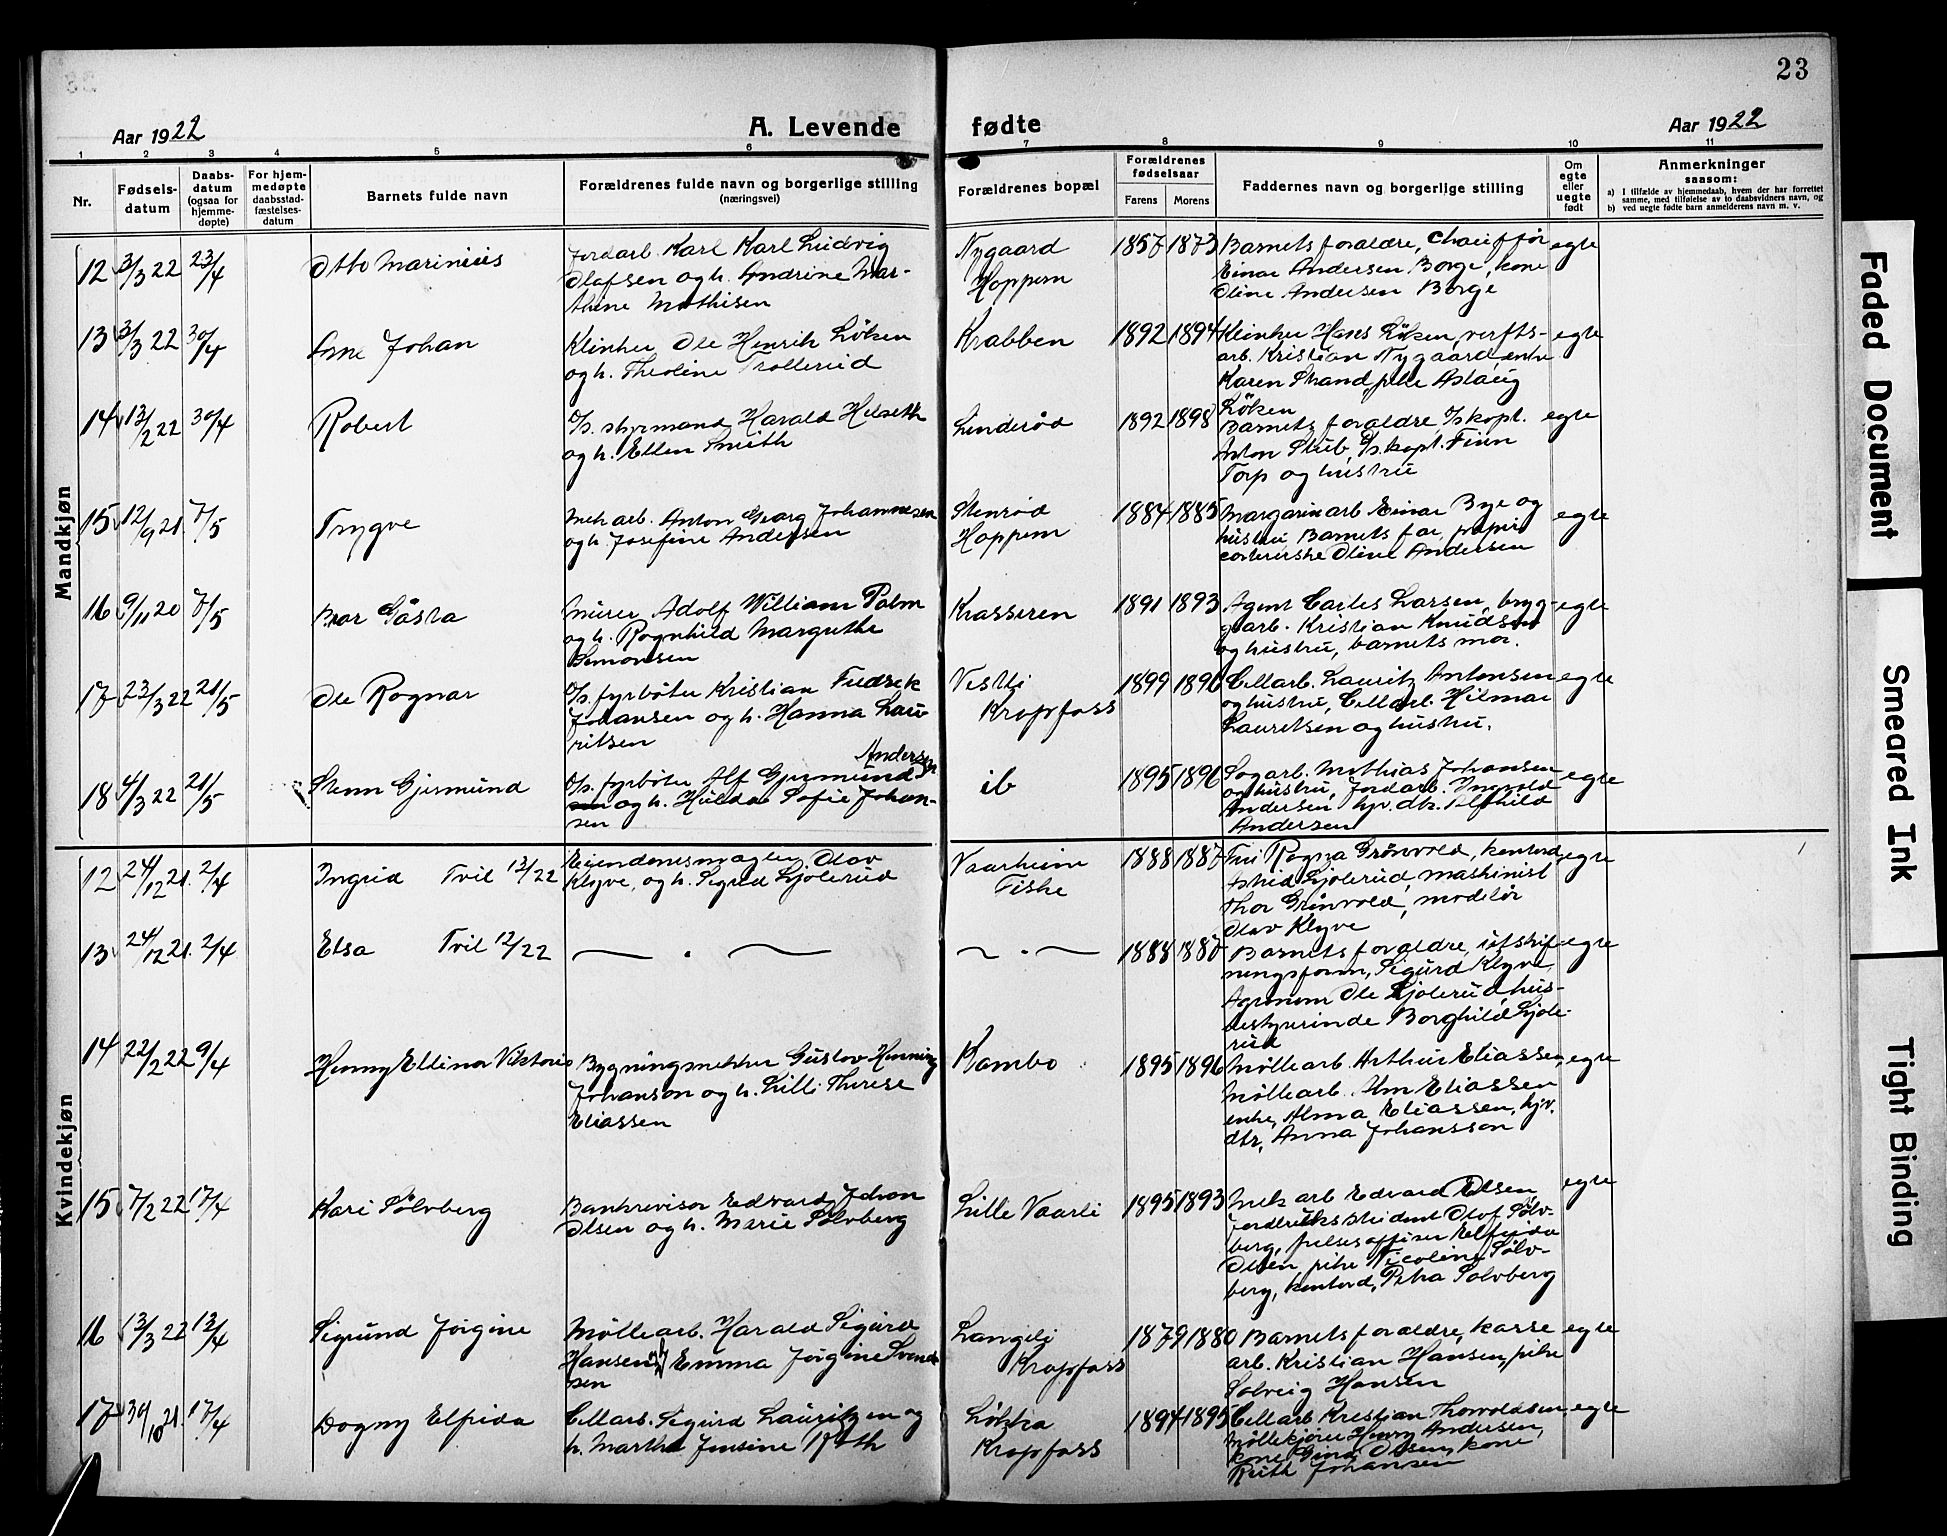 23
Aar 1922
A. Levende fødte
Aar 1922
1 2 3 4 5 6 7 8 9 10 11
Nr.
Fødsels-
datum
Daabs-
datum
(ogsaa for
hjemme-
døpte)
For hjem-
medøpte
daabsstad-
fæstelses-
datum
Barnets fulde navn
Forældrenes fulde navn og borgerlige stilling
(næringsvei)
Forældrenes bopæl
Forældrenes
fødselsaar
Farens
Morens
Faddernes navn og borgerlige stilling
Om
egte
eller
uegte
født
Anmerkninger
saasom:
a) I tilfælde av hjemmedaab, hvem der har forrettet
samme, med tilføielse av to daabsvidners navn, og
b) ved uegte fødte barn anmelderens navn m. v.
Mandkjøn
12 3/3 22 23/4 Otto Marinius
Jordarb. Karl Karl Ludvig
Olafsen og h. Andrine Mar-
thine Mathisen
Nygaard
Hoppern
1857 1873
Barnets foraldre, chauffør
Einar Andersen Borge, kone
Oline Andersen Borge
egte
13 3/3 22 30/4 Arne Johan
Klinker Ole Henrik Løken
og h. Theoline Trollerud
Krabben
1892 1894
Klinker Hans Løken, verfts-
arb. Kristian Nygaard, enke
Karen Strand, pike Aslaug
Løken
egte
14 13/2 22 30/4 Robert
D/s. styrmand Harald Helseth
og h. Ellen Smith
Linderød
1892 1898
Barnets foraldre D/s kapt.
Anton Stub, D/s. kapt. Finn
Torp og hustru
egte
15 12/9 21. 7/5 Trygve
Mek arb. Anton Georg Johannesen
og h. Josefine Andersen
Stenrød
Hoppern
1884 1885
Margarinarb Einar Bye og
hustru Barnets far, papir
sorterерske Oline Andersen
egte
16 9/11 20 7/5 Gösta
Murer Adolf William Palm
og h. Ragnhild Margrethe
Simonsen
Krasseren
1891 1893
Agent Carles Larsen, bryg-
garb. Kristian Knudsen
og hustru, barnets mor.
egte
17 23/3 22 21/5 Ole Ragnar
D/s. fyrbøter Kristian Fredrek
Johansen og h. Hanna Lau-
ritsen
Vestli
Krapfoss
1899 1896
Cellarb. Lauritz Antonsen
og hustru, Cellarb. Hilmar
Lauretsen og hustru.
egte
18 4/3 22 21/5 Stenn Gjermund
D/s. fyrbøter Alf Gjermund Andersen
og h. Hulda Sofie Johan-
sen
ib
1895 1896
Sagarb. Mathias Johansen
og hustru, Jordarb. Ingvald
Andersen hjv. dtr. Alfhild
Andersen
egte
Kvindekjøn
12 24/12 21. 2/4 Ingrid Tvil 13/22
Eiendomsmægler Olav
Klyve, og h. Sigrid Sjølerud
Vaarheim
Fiske
1888 1887
Frk Ragna Grønvold, kontord
Astrid Sjølerud, maskinist
Thor Grønvold, modelør
Olav Klyve
egte
13 24/12 21. 2/4 Elsa Tvil 12/22
1888 1887
Barnets foraldre, utskif-
ningsform, Sigurd Klyve,
Agronom Ole Sjølerud, hus-
bestyrerinde Borghild Sjøle-
rud
egte
14 22/2 22 9/4 Henny Ellinor Viktoria
Bygningsnekker Gustav Henning
Johanson og h. Lilli Therese
Eliassen
Kambo
1895 1896
Møllearb. Arthur Eliassen,
Møllearb. Alm Eliassen
enke, Alma Eliassen, hjv.
dtr, Anna Johansson
egte
15 7/2 22 17/4 Kari Sølvberg
Bankrevisor Edvard Johan
Olsen og h. Marie Sølvberg
Lille Vaarli
1895 1893
Mek arb Edvard Olsen,
student Olaf Sølv-
berg, frelsesoffiser Elfrida
Olsen, pike Nicoline Sølv-
berg, kontord, Petra Sølvberg
egte
16 13/3 22 13/4 Sigrund Jørgine
Møllearb. Harald Sigurd
Hansen og Emma Jørgine Svend-
sen
Langeli
Krapfoss
1879 1880
Barnets foraldre, kasse
arb. Kristian Hansen, pike
Solveig Hansen
egte
17 30/10 21. 17/4 Dagny Elfrida
Cellarb. Sigurd Lauritzen og
h. Marthe Jensine Roth
Løkka
Krapfoss
1894 1895
Cellarb Kristian Thorvaldsen,
Møllekjører Henry Andersen,
kone Gina Olsen, kone
Ruth Johansen
egte
Faded Document
Smeared Ink
Tight Binding